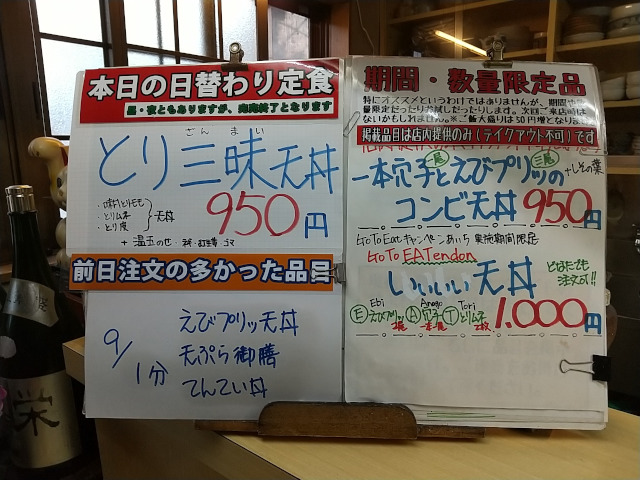 本日の日替わり定食
昼・夜ともありますが、完売終了となります
ざんまい
とり三昧天丼
・とりモモ
・とりムネ
・とり皮
天丼
950円
+温玉のせ
前日注文の多かった品目
9/1分
えびプリッ天丼
天ぷら御膳
てんてい丼
期間・数量限定品
特にオススメというわけではありませんが、期間や数
量限定だったりお試しだったりします。次回ご来店時は
ないかもしれません。※ご飯大盛りは50円増となりま
掲載品目は店内提供のみ(テイクアウト不可)です
一尾 三尾
一本穴子とえびプリッの +しその葉
コンビ天丼 950円
GoToEatキャンペーンあいち 実施期間限定
GoTo EATendon
いいいい天丼 どなたでも
注文可!!
Ebi Anago Tori
Ⓔえびプリッ Ⓐ穴子 Ⓣとりムネ
2尾 一本 2枚
1.000円
栄